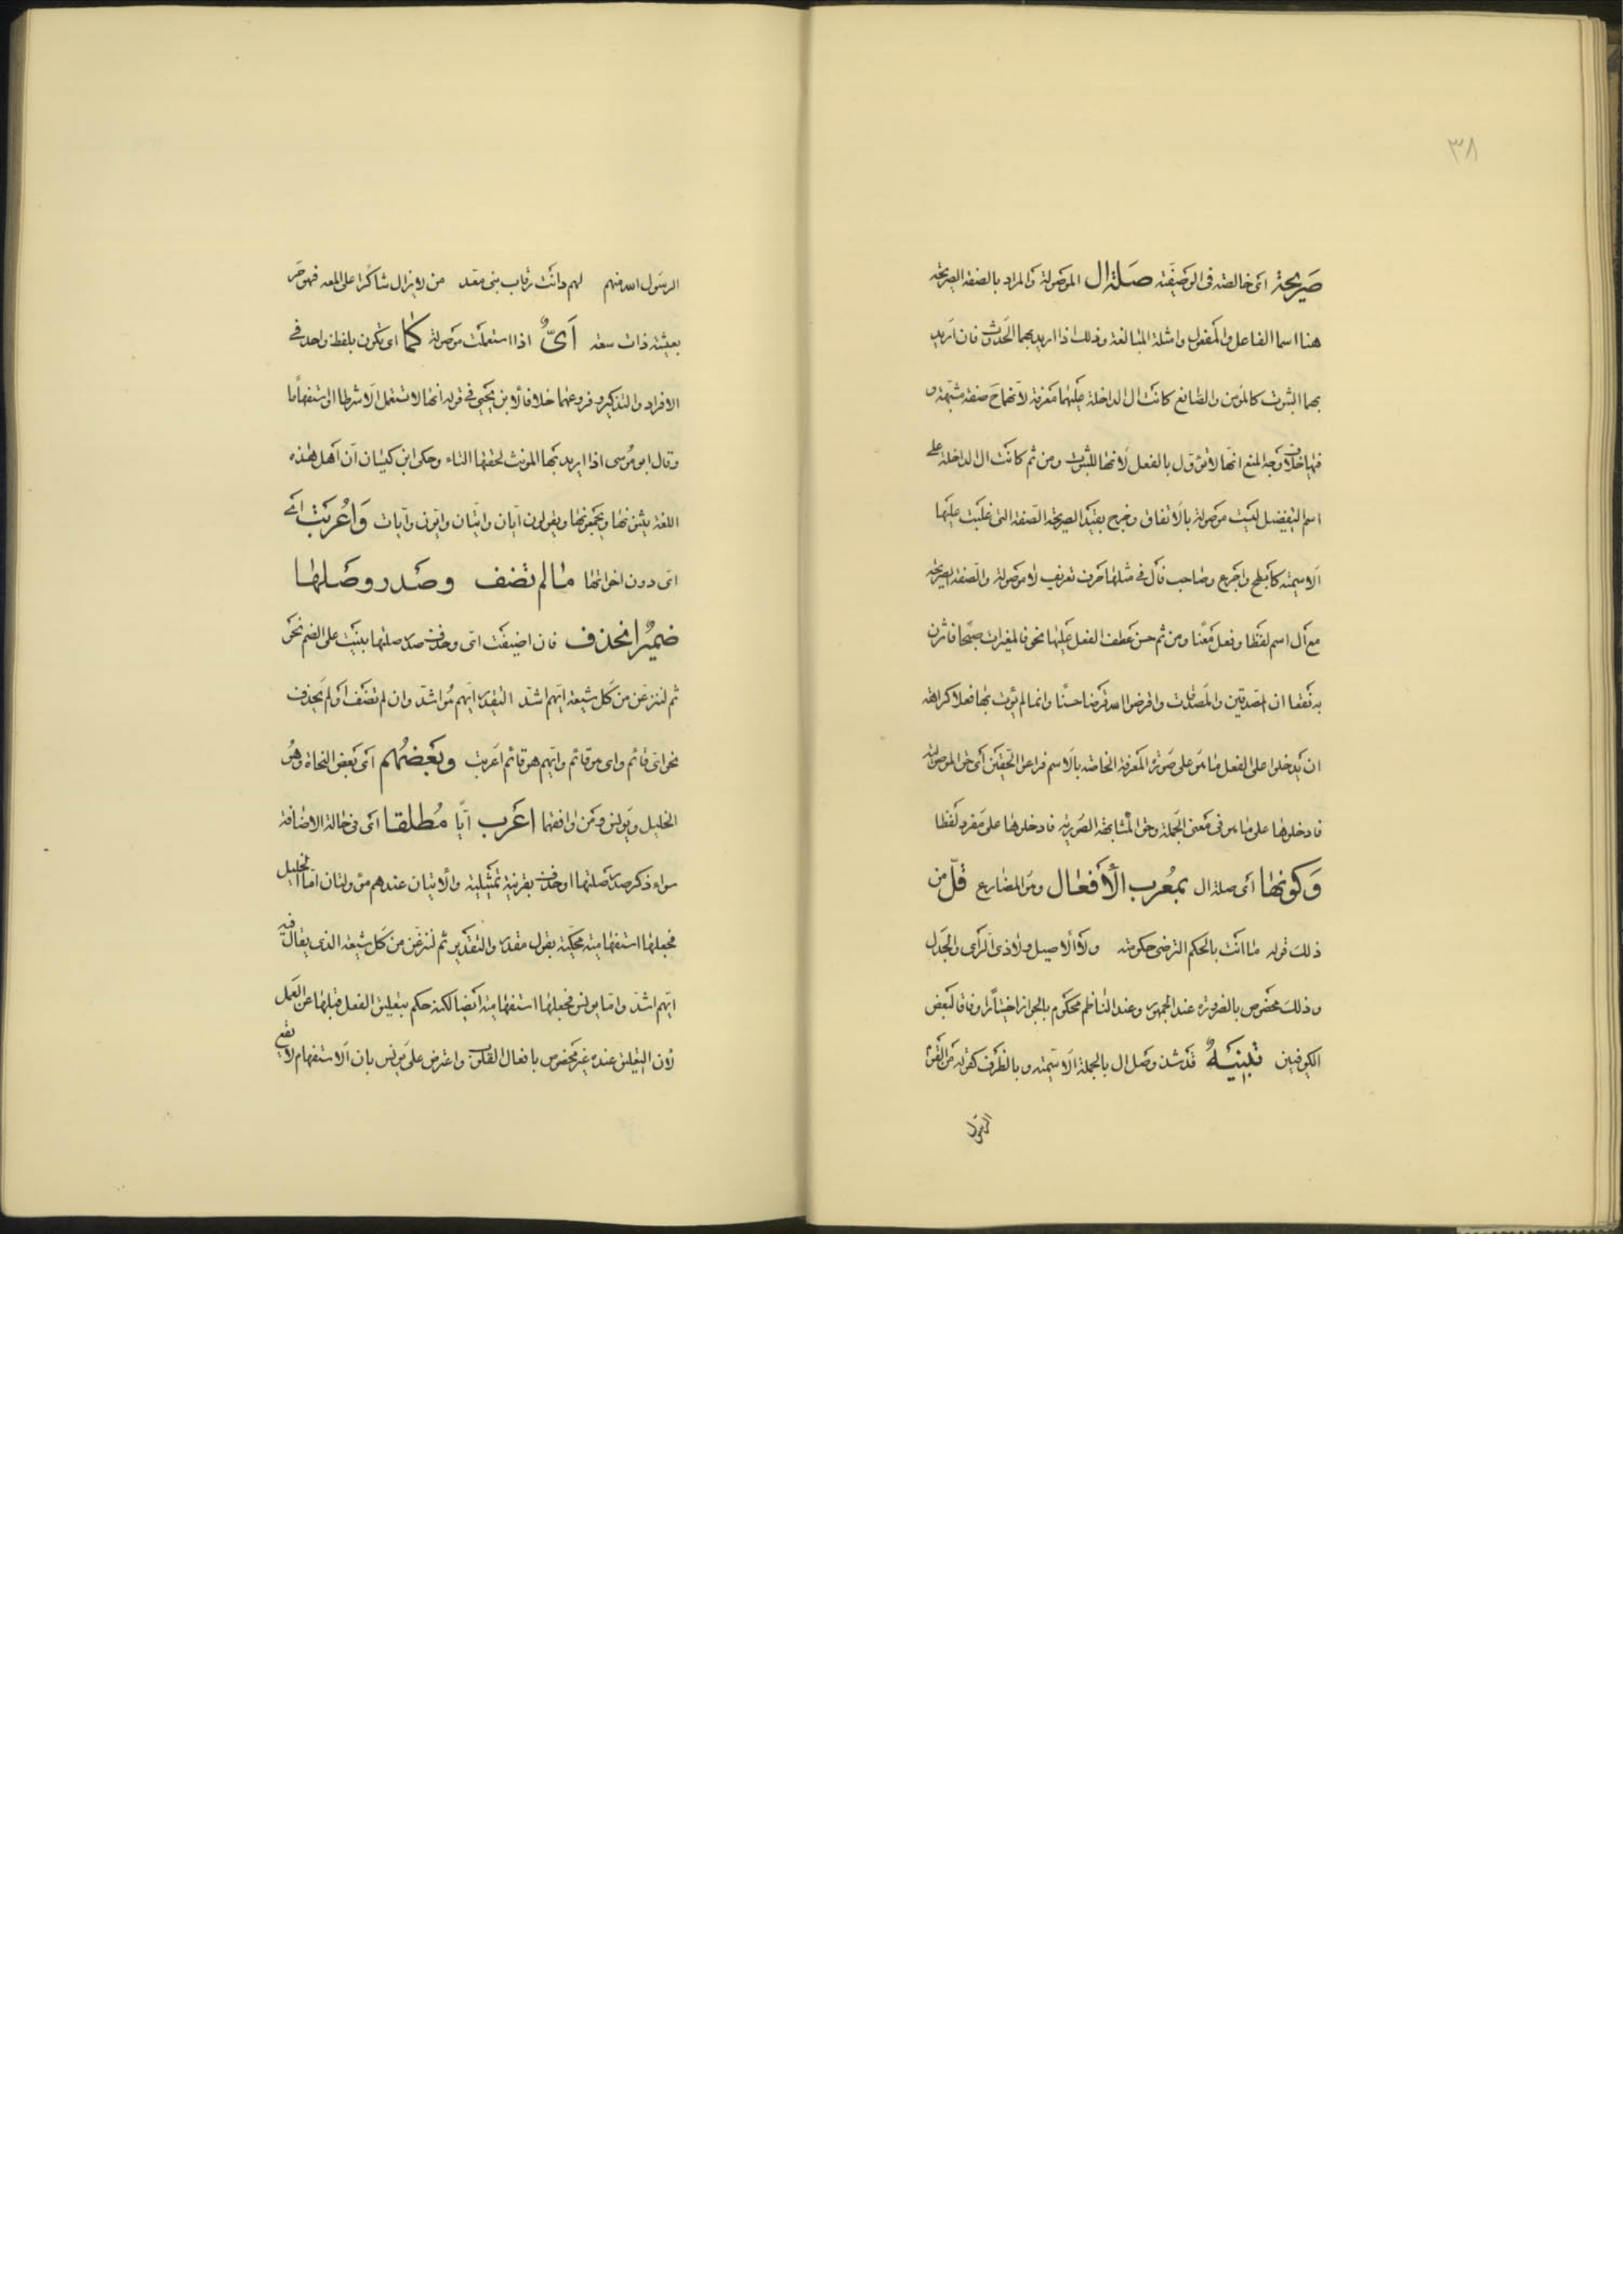 ٣٨
صَريحة اى خالصة فى الوصفية صلة ال الموصولة والمراد بالصفة الصريحة
هنا اسما الفاعل والمفعول وامثلة المبالغة وذلك اذا اريد بهما الحدوث فان اريد
بهما الثبوت كالمومن والصانع كانت ال الداخلة عليهما معرفة لانهما ح صفة مشبهة و
فيها خلاف وجه المنع انها لا تؤول بالفعل لانها للثبوت ومن ثم كانت ال الداخلة على
اسم التفضيل ليست موصولة بالاتفاق وخرج بقيد الصريحة الصفة التى غلبت عليها
الاسمية كابطح واجرع وصاحب فال فى مثلها حرف تعريف لا موصولة والصفة الصريحة
مع ال اسم لفظا وفعل معنا ومن ثم حسن عطف الفعل عليها نحو فالمغيرات صبحا فاثرن
به نقعا ان المصدقين والمصدقات واقرضوا الله قرضا حسنًا وانما لم يؤت بها فعلا كراهة
ان يدخلوا على الفعل ما هو على صورة المعرفة الخاصة بالاسم فراعوا الحقين اى حق الموصولية
فادخلوها على ما هو فى معنى الجملة وحق المشابهة الصورية فادخلوها على مفرد لفظا
وَكونها اى صلة ال بمُعرب الأفعال وهو المضارع قلّ من
ذلك قوله ما انت بالحكم الترضى حكومته ولا الاصيل ولا ذى الراى والجدل
وذلك مخصوص بالضرورة عند الجمهور وعند الناظم محكوم بالجواز اختيارا وفاقا لبعض
الكوفيين تنبيهٌ قد شذ وصل ال بالجملة الاسمية وبالظرف كقوله من القوم
الرسول
الرسول الله منهم لهم دانت رقاب بنى معد من لا يزال شاكرًا على المعه فهو حر
بعيشة ذات سعه اَىٌّ اذا استعملت موصولة كما اى تكون بلفظ واحد فى
الافراد والتذكير وفروعهما خلافا لابن يحيى فى قوله انها لا تستعمل الا شرطا او استفهاما
وقال ابو موسى اذا اريد بها المونث لحقتها التاء وحكى ابن كيسان ان اهل هذه
اللغة يثنونها ويجمعونها ويقولون ايان وايتان وايون وايات وَاعُربَت اى
اى دون اخواتها ما لم تضف وصَدر وصَلها
ضميٌر انحذف فان اضيفت اى وحذف صدر صلتها بنيت على الضم نحو
ثم لننزعن من كل شيعة ايهم اشد التقدير ايهم هو اشد وان لم تضف او لم يحذف
نحو اى قائم واى هو قائم وايهم هو قائم اعربت وبَعَضُهم اى بعض النحاة وهو
الخليل ويونس ومن وافقهما اعَرب ايًا مُطلقا اى فى حالة الاضافة
سواء ذكر صدر صلتها او حذف بقرينة تمثيلية والايتان عندهم مؤولتان اما الخليل
فجعلها استفهامية محكية بقول مقدر والتقدير ثم لننزعن من كل شيعة الذى يقال فيه
ايهم اشد واما يونس فجعلها استفهامية ايضا لكنه حكم بتعليق الفعل قبلها عن العمل
لان التعليق عنده غير مخصوص بافعال القلوب واعترض على يونس بان الاستفهام لا يقع